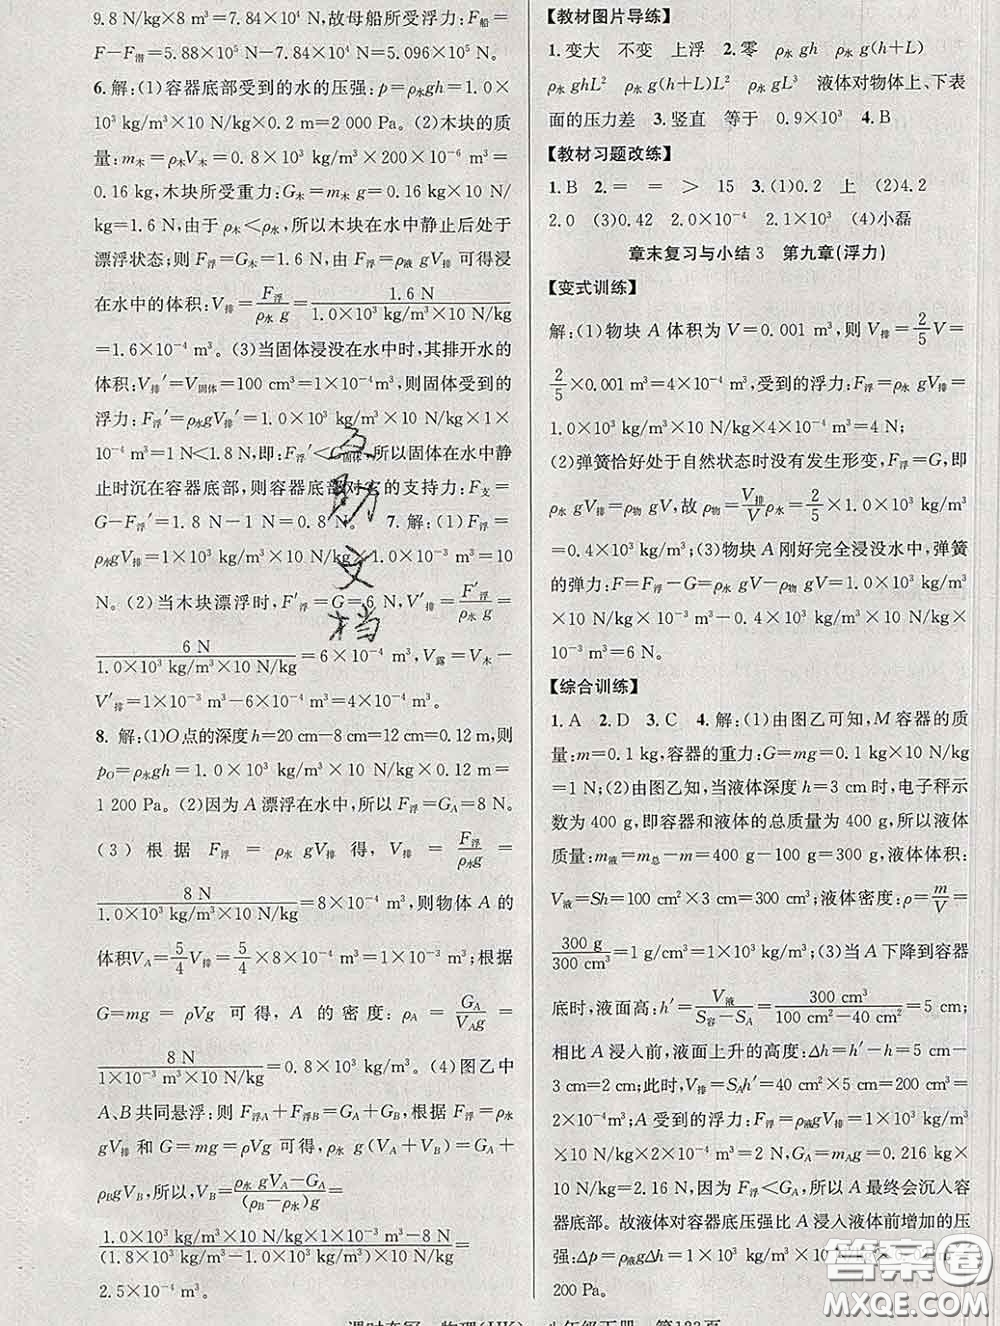 9.8 N/kg=7.84×10⁴ N,故母船所受浮力:F船
=F−F潜=5.88×10⁵ N−7.84×10⁴ N=5.096×10⁵ N。
6. 解:(1)容器底部受到的水的压强:p=ρ水gh=1.0×
10³ kg/m³×10 N/kg×0.2 m=2 000 Pa。(2)木块的质
量:m木=ρ木V木=0.8×10³ kg/m³×200×10⁻⁶ m³=
0.16 kg,木块所受重力:G木=m木 g=0.16 kg×10 N/
kg=1.6 N,由于 ρ木<ρ水,所以木块在水中静止后处于
漂浮状态;则 F浮=G木=1.6 N,由 F浮=ρ液 gV排 可得浸
在水中的体积:V排=F浮/ρ水 g=1.6 N/1.0×10³ kg/m³×10 N/kg
=1.6×10⁻⁴ m³。(3)当固体浸没在水中时,其排开水的
体积:V排′=V固体=100 cm³=1×10⁻⁴ m³,则固体受到的
浮力:F浮′=ρ水gV排′=1.0×10³ kg/m³×10 N/kg×1×
10⁻⁴ m³=1 N<1.8 N,即:F浮′<G固体,所以固体在水中静
止时沉在容器底部,则容器底部对它的支持力:F支=
G−F浮′=1.8 N−1 N=0.8 N。 7. 解:(1)F浮=
ρ水gV排=1×10³ kg/m³×10 N/kg×1.0×10⁻³ m³=10
N。(2)当木块漂浮时,F′浮=G=6 N,V′排=F′浮/ρ水 g=
6 N/1.0×10³ kg/m³×10 N/kg=6×10⁻⁴ m³,V露=V木−
V′排=1×10⁻³ m³−6×10⁻⁴ m³=4×10⁻⁴ m³。
8. 解:(1)O点的深度h=20 cm−8 cm=12 cm=0.12 m,则
pO=ρ水gh=1.0×10³ kg/m³×10 N/kg×0.12 m=
1 200 Pa。(2)因为 A 漂浮在水中,所以 F浮=GA=8 N。
(3)根据 F浮=ρ水 gV排 得,V排=F浮/ρ水g=
8 N/1.0×10³ kg/m³×10 N/kg=8×10⁻⁴ m³,则物体 A 的
体积VA=5/4V排=5/4×8×10⁻⁴ m³=1×10⁻³ m³;根据
G=mg=ρVg 可得,A 的密度:ρA=GA/VAg=
8 N/1×10⁻³ m³×10 N/kg=0.8×10³ kg/m³。(4)图乙中
A、B共同悬浮:则 F浮A+F浮B=GA+GB,根据 F浮=ρ水
gV排 和 G=mg=ρVg 可得,ρ水 g(VA+VB)=GA+
ρBgVB,所以,VB=ρ水 gVA−GA/(ρB−ρ水)g=
1.0×10³ kg/m³×10 N/kg×1×10⁻³ m³−8 N/(1.8×10³ kg/m³−1.0×10³ kg/m³)×10 N/kg=
2.5×10⁻⁴ m³。
【教材图片导练】
1. 变大 不变 上浮 2. 零 ρ水 gh ρ水 g(h+L)
ρ水 ghL² ρ水 g(h+L)L² ρ水 gL³ 液体对物体上、下表
面的压力差 3. 竖直 等于 0.9×10³ 4. B
【教材习题改练】
1. B 2. = = > 15 3. (1)0.2 上 (2)4.2
2.0 (3)0.42 2.0×10⁻⁴ 2.1×10³ (4)小磊
章末复习与小结3 第九章(浮力)
【变式训练】
解:(1)物块 A 体积为 V=0.001 m³,则 V排=2/5V=
2/5×0.001 m³=4×10⁻⁴ m³,受到的浮力:F浮=ρ水 gV排=
1.0×10³ kg/m³×10 N/kg×4×10⁻⁴ m³=4 N;
(2)弹簧恰好处于自然状态时没有发生形变,F浮=G,即
ρ水 gV排=ρ物 gV,故 ρ物=V排/Vρ水=2/5×1.0×10³ kg/m³
=0.4×10³ kg/m³;(3)物块 A 刚好完全浸没水中,弹簧
的弹力:F=F浮−G=ρ水 gV−ρ物 gV=1.0×10³ kg/m³
×10 N/kg×10⁻³ m³−0.4×10³ kg/m³×10 N/kg×
10⁻³ m³=6 N。
【综合训练】
1. A 2. D 3. C 4. 解:(1)由图乙可知,M 容器的质
量:m=0.1 kg,容器的重力:G=mg=0.1 kg×10 N/kg
=1 N;(2)由图乙知,当液体深度 h=3 cm时,电子秤示
数为 400 g,即容器和液体的总质量为 400 g,所以液体
质量:m液=m总−m=400 g−100 g=300 g,液体体积:
V液=Sh=100 cm²×3 cm=300 cm³,液体密度:ρ=m/V=
300 g/300 cm³=1 g/cm³=1×10³ kg/m³;(3)当 A 下降到容器
底时,液面高:h′=V液/S容−SA=300 cm³/100 cm²−40 cm²=5 cm;
相比 A 浸入前,液面上升的高度:Δh=h′−h=5 cm−
3 cm=2 cm;此时,V排=SAh′=40 cm²×5 cm=200 cm³=
2×10⁻⁴ m³;A 受到的浮力:F浮=ρ液gV排=1×10³ kg/m³
×10 N/kg×2×10⁻⁴ m³=2 N,GA=mAg=0.216 kg
×10 N/kg=2.16 N,因为 F浮<GA,所以 A 最终会沉入容
器底部。故液体对容器底压强比 A 浸入液体前增加的压
强:Δp=ρ液gΔh=1×10³ kg/m³×10 N/
200 Pa。
互助文档
答案圈